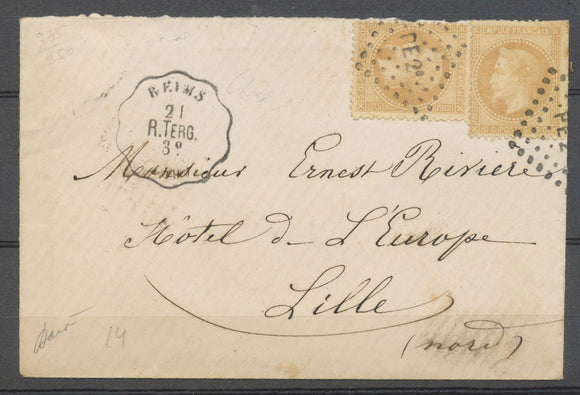 EMPIRE FRANÇAIS
REIMS
21
R.TERG.
3º
Monsieur Ernest Rivière
Hôtel de L'Europe
Lille
(nord)
14